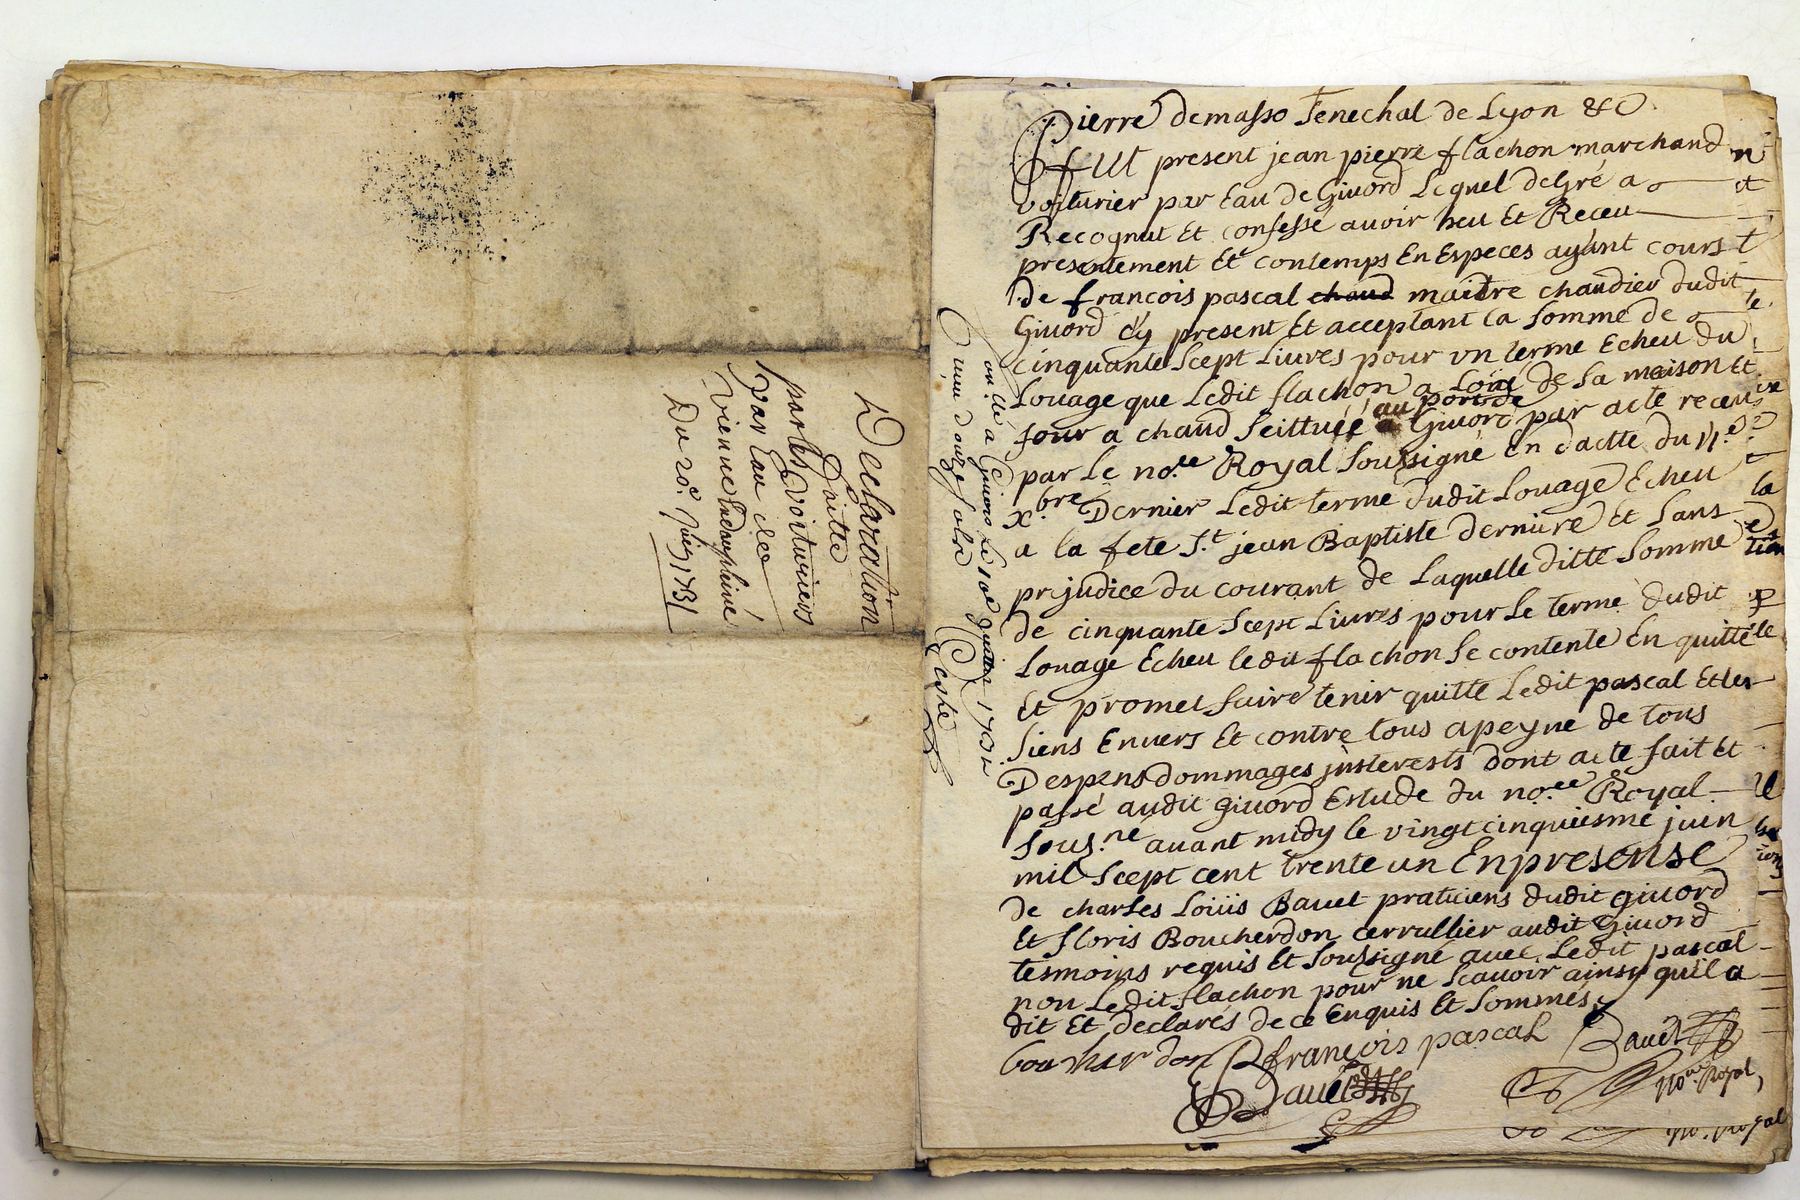 Declaration
Faitte
par les voituriers
par Eau de
Vienne Endauphiné
Du 20e. juin 1731
Pierre demasso Senechal de Lyon &c
fut present jean pierre flachon marchand
voiturier par Eau de Givord Lequel de Gré a
Recognut Et confesse avoir heu Et Receu
presentement Et contemps En Especes ayant cours
de francois pascal chaud maitre chaudier dudit
Givord cy present Et acceptant la somme de
cinquante Scept Livres pour vn terme Echeu du
Louage que Ledit flachon a Loué de sa maison Et
au port de
four a chaud Scittuée a Givord par acte receu
par Le no.re Royal Soussigné En datte du 11.e
x.bre Dernier Ledit terme dudit Louage Echeu
a la fete S.t jean Baptiste derniere et sans
prejudice du courant de Laquelle ditte Somme
de cinquante Scept Livres pour Le terme dudit
Louage Echeu ledit flachon Se contente En quitte
Et promet faire tenir quitte Ledit pascal Et les
Siens Envers Et contre tous apeyne de tous
Despens dommages jnterests dont acte fait Et
passé audit givord Estude du no.re Royal
Sous.né avant midy le vingt cinquiesme juin
mil Scept cent trente un En presense
de charles Loüis Bavet praticiens dudit givord
Et floris Boucherdon cerrullier audit Givord
tesmoins requis Et Soussigné avec Ledit pascal
non Ledit flachon pour ne Scavoir ainsy quil a
dit Et declarés de ce Enquis Et Sommés
bouchardon françois pascal Bavet
Bavet
no.re Royal
no. Royal
on.llé a Givors Le 10e juillet 1731
reçeu douze sols